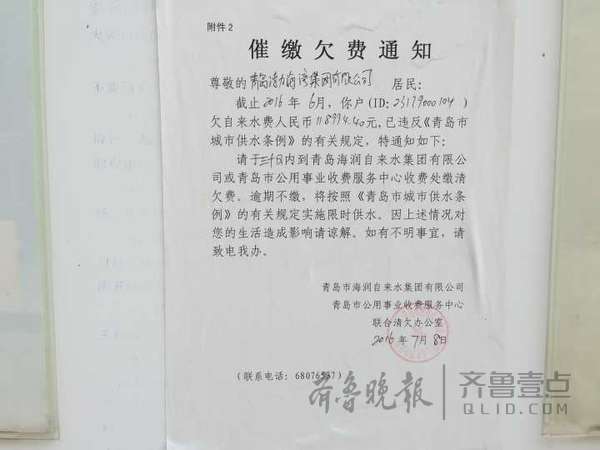 附件2
催缴欠费通知
尊敬的青岛 集团有限公司 居民：
截止2016年6月，你户（ID：23179000104）
欠自来水费人民币118994.40元，已违反《青岛市
城市供水条例》的有关规定，特通知如下：
请于三十日内到青岛海润自来水集团有限公
司或青岛市公用事业收费服务中心收费处缴清
欠费。逾期不缴，将按照《青岛市城市供水条
例》的有关规定实施限时供水。因上述情况对
您的生活造成影响请谅解。如有不明事宜，请
致电我办。
青岛市海润自来水集团有限公司
青岛市公用事业收费服务中心
联合清欠办公室
2016年7月8日
（联系电话：68076537）
齐鲁晚报 齐鲁壹点
QLID.COM